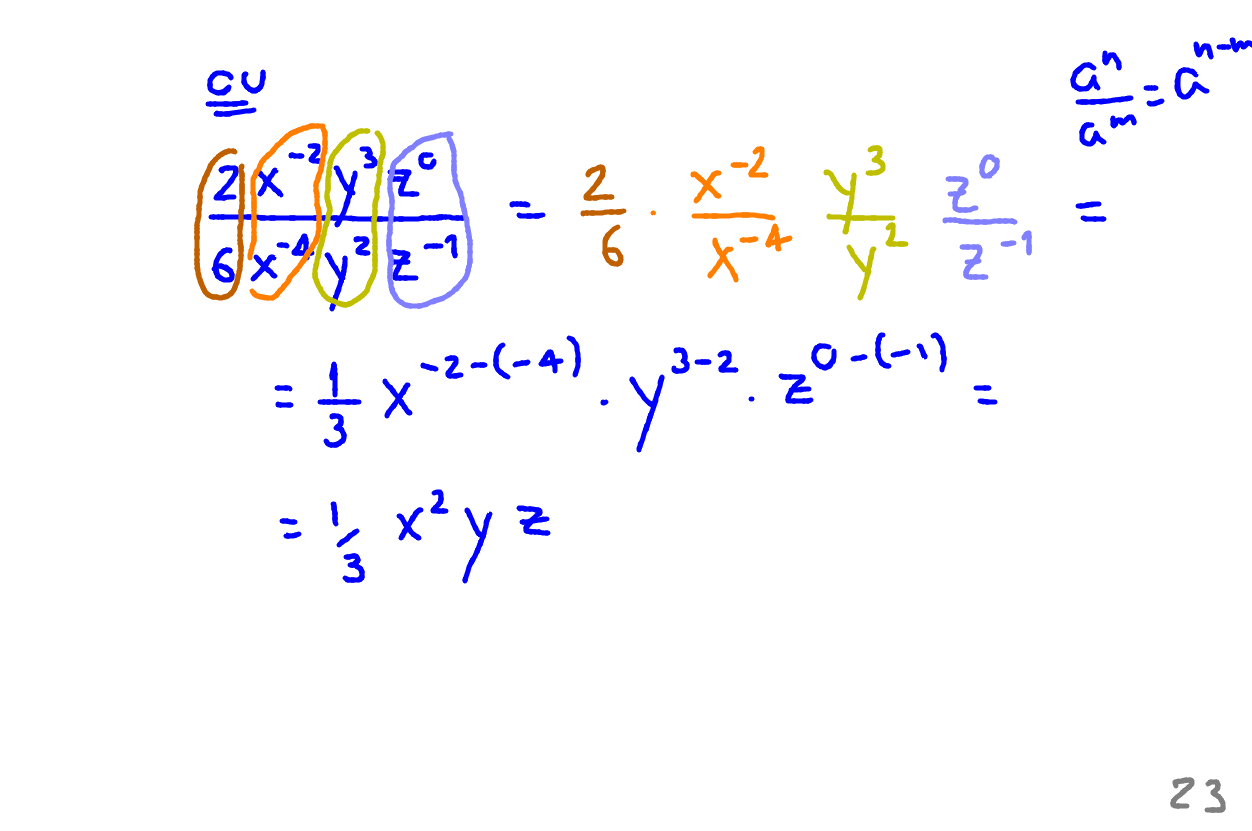 CU
a^n/a^m = a^(n-m)
(2x^-2 y^3 z^0)/(6x^-4 y^2 z^-1) = 2/6 · x^-2/x^-4 y^3/y^2 z^0/z^-1 =
= 1/3 x^(-2-(-4)) · y^(3-2) · z^(0-(-1)) =
= 1/3 x^2 y z
23